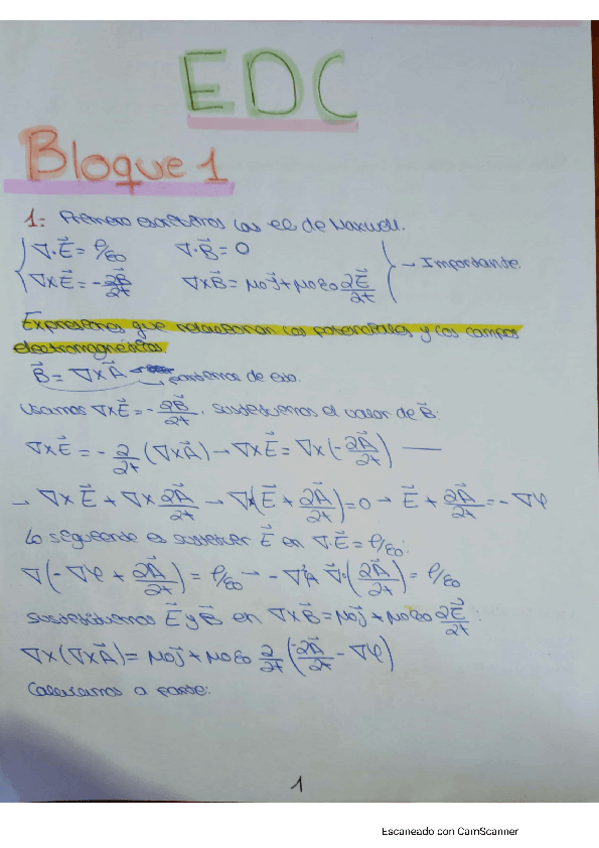 EDC
Bloque 1
1: Primero escribimos las ec de Maxwell.
∇·E⃗ = ρ/ε0   ∇·B⃗ = 0
∇×E⃗ = -∂B⃗/∂t   ∇×B⃗ = μ0J⃗ + μ0ε0 ∂E⃗/∂t → Importante.
Expresiones que relacionan los potenciales y los campos
electromagnéticos.
B⃗ = ∇×A⃗ → partimos de eso.
Usamos ∇×E⃗ = -∂B⃗/∂t, sustituimos el valor de B⃗:
∇×E⃗ = -∂/∂t (∇×A⃗) → ∇×E⃗ = ∇×(-∂A⃗/∂t) —
→ ∇×E⃗ + ∇×∂A⃗/∂t → ∇×(E⃗ + ∂A⃗/∂t) = 0 → E⃗ + ∂A⃗/∂t = -∇φ
Lo siguiente es sustituir E⃗ en ∇·E⃗ = ρ/ε0:
∇(-∇φ + ∂A⃗/∂t) = ρ/ε0 → -∇²A ∇⃗·(∂A⃗/∂t) = ρ/ε0
Sustituimos E⃗ y B⃗ en ∇×B⃗ = μ0J⃗ + μ0ε0 ∂E⃗/∂t:
∇×(∇×A⃗) = μ0J⃗ + μ0ε0 ∂/∂t (-∂A⃗/∂t - ∇φ)
Calculamos a parte:
1
Escaneado con CamScanner